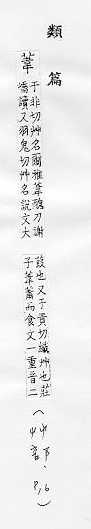 類篇
葦
于非切艸名爾雅葦醜芀謝
嶠讀又羽鬼切艸名說文大
葭也又于貴切織艸也莊
子葦蕭而食文一重音二
(艸部、